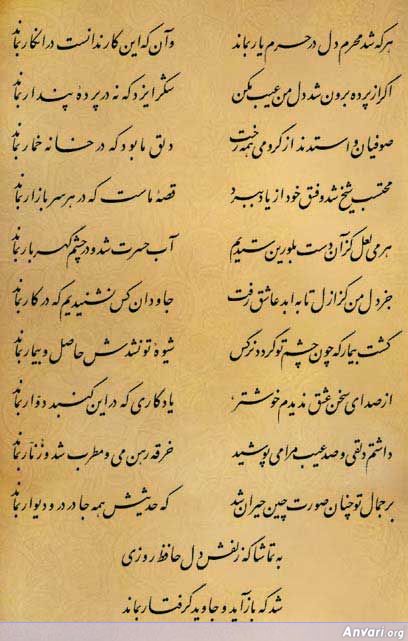 هر که شد محرم دل در حرم یار بماند وآن که این کار ندانست در انکار بماند
اگر از پرده برون شد دل من عیب مکن شکر ایزد که نه در پردهٔ پندار بماند
صوفیان واستدند از گرو می همه رخت دلق ما بود که در خانه خمار بماند
محتسب شیخ شد و فسق خود از یاد ببرد قصهٔ ماست که در هر سر بازار بماند
هر می لعل کز آن دست بلورین ستدیم آب حسرت شد و در چشم گهربار بماند
جز دل من کز ازل تا به ابد عاشق رفت جاودان کس نشنیدیم که در کار بماند
گشت بیمار که چون چشم تو گردد نرگس شیوهٔ تو نشدش حاصل و بیمار بماند
از صدای سخن عشق ندیدم خوشتر یادگاری که در این گنبد دوار بماند
داشتم دلقی و صد عیب مرا می پوشید خرقه رهن می و مطرب شد و زنار بماند
بر جمال تو چنان صورت چین حیران شد که حدیثش همه جا در در و دیوار بماند
به تماشاگه زلفش دل حافظ روزی
شد که باز آید و جاوید گرفتار بماند
Anvari.org